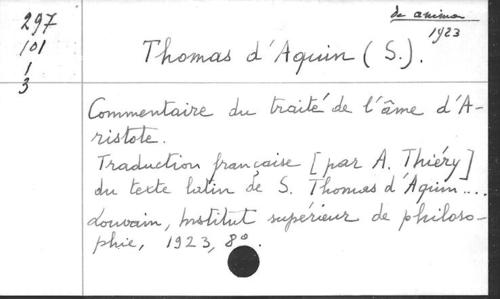 297
101
1
3
de anima
1923
Thomas d'Aquin (S.).
Commentaire du traité de l'âme d'A-
ristote.
Traduction française [par A. Thiéry]
du texte latin de S. Thomas d'Aquin....
Louvain, Institut supérieur de philoso-
phie, 1923, 8º.